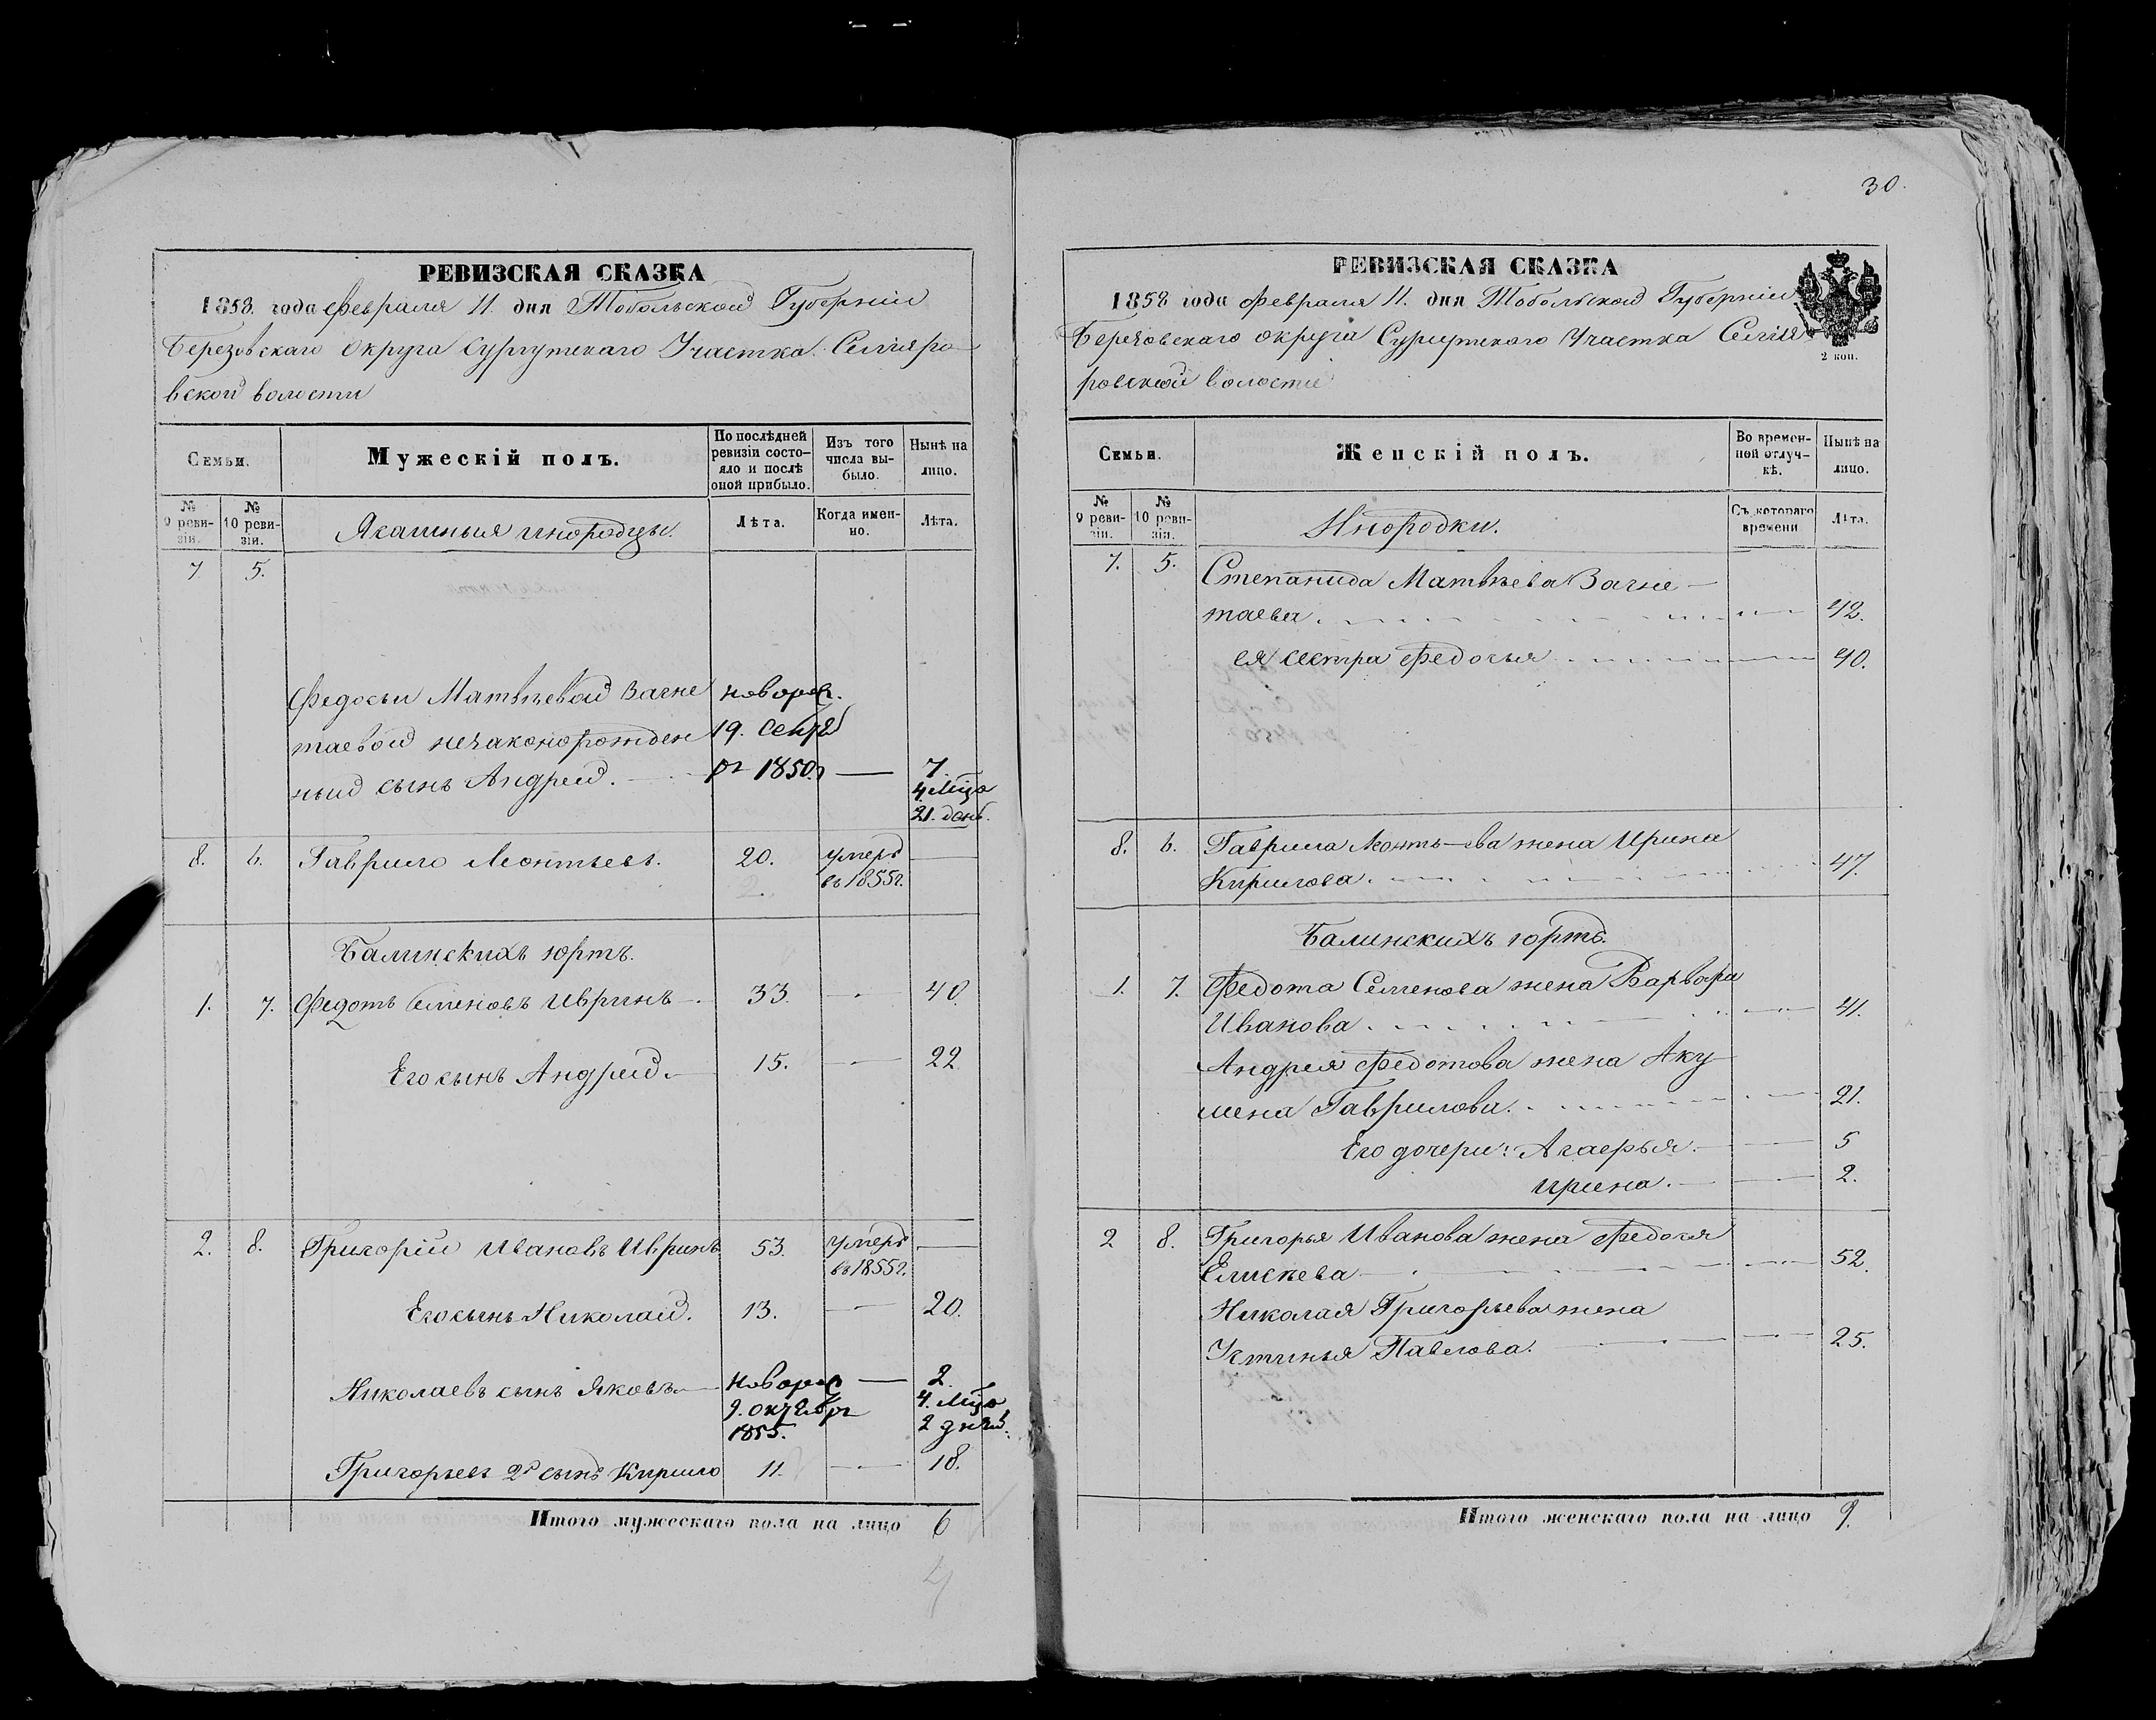 30.
РЕВИЗСКАЯ СКАЗКА
1858. года Февраля 11. дня Тобольской Губерніи
Березовскаго Округа Сургутскаго Участка Селіяро-
вской волости
Семьи.
Мужескій полъ.
По послѣдней
ревизіи состо-
яло и послѣ
оной прибыло.
Изъ того
числа вы-
было.
Нынѣ на
лицо.
№
9 реви-
зіи.
№
10 реви-
зіи.
Ясашныя инородцы.
Лѣта.
Когда имен-
но.
Лѣта.
7. 5.
Федосьи Матвѣевой новорож.
таевой незаконорожден 19. Сентяб
ный сынъ Андрей. — 1850. — 7.
4. мца
21. день.
8. 6. Гаврило Леонтьевъ. 20. умеръ —
въ 1855г.
Балинскихъ юртъ.
1. 7. Федотъ Семеновъ Ивринъ — 33. — 40.
Его сынъ Андрей. — 15. — 22.
2. 8. Григорій Ивановъ Ивринъ 53. умеръ —
въ 1855г.
Его сынъ Николай. 13. — 20.
Николаевъ сынъ Яковъ — новорож — 2.
9. октября 4. мца
1855. 2 дней.
Григорьевъ 2й сынъ Кирило 11. — 18.
Итого мужескаго пола на лицо 6
4
РЕВИЗСКАЯ СКАЗКА
1858 года Февраля 11. дня Тобольской Губерніи
Березовскаго округа Сургутскаго Участка Селія-
ровской волости
2 коп.
Семьи.
Женскій полъ.
Во времен-
ной отлуч-
кѣ.
Нынѣ на
лицо.
№
9 реви-
зіи.
№
10 реви-
зіи.
Инородки.
Съ котораго
времени
Лѣта.
7. 5. Степанида Матвѣева
таева. — 42.
ея сестра Федосья — 40.
8. 6. Гаврила Леонтьева жена Ирина
Кирилова. 47.
Балинскихъ юртъ.
1. 7. Федота Семенова жена Варвара
Иванова. — 41.
Андрея Федотова жена Аку
лина Гаврилова. — 21.
Его дочери: Агафья. — 5
Ирина. — 2.
2 8. Григорья Иванова жена Федосья
Елисѣева — 52.
Николая Григорьева жена
Устинья Павлова. — 25.
Итого женскаго пола на лицо 9.